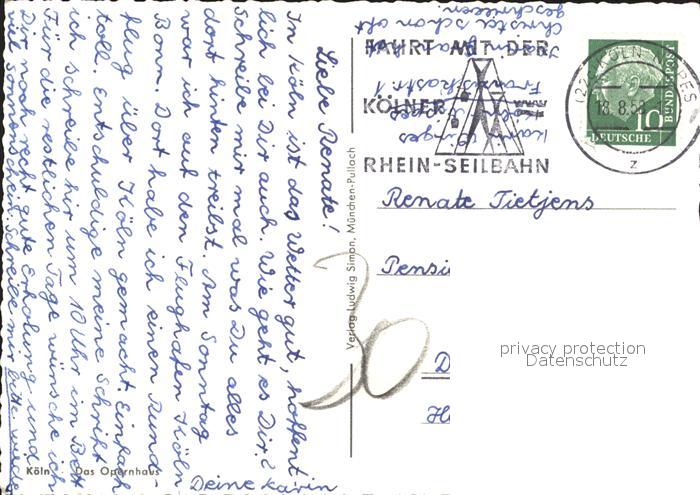 Liebe Renate!
In Köln ist das Wetter gut, hoffent-
lich bei Dir auch. Wie geht es Dir?
Schreibe mir mal was Du alles
dort hinten treibst. Am Sonntag
war ich auf den Flughafen Köln
Bonn. Dort habe ich einen Rund-
flug über Köln gemacht. Einfach
toll. Entschuldige meine Schrift
ich schreibe hir um 10 Uhr im Bett
Für die restlichen Tage wünsche ich
Dir noch recht gute Erholung und
schreibe mir bitte wieder
Deine Karin
Christa schon oft
geschrieben.
Karin
Köln
Das Opernhaus
Verlag Ludwig Simon, München-Pullach
FAHRT MIT DER
KÖLNER
RHEIN-SEILBAHN
(22c) KÖLN-NIPPES
18.8.58
z
10
DEUTSCHE
BUNDESPOST
Renate Tietjens
Pensi
D
H
30
privacy protection
Datenschutz